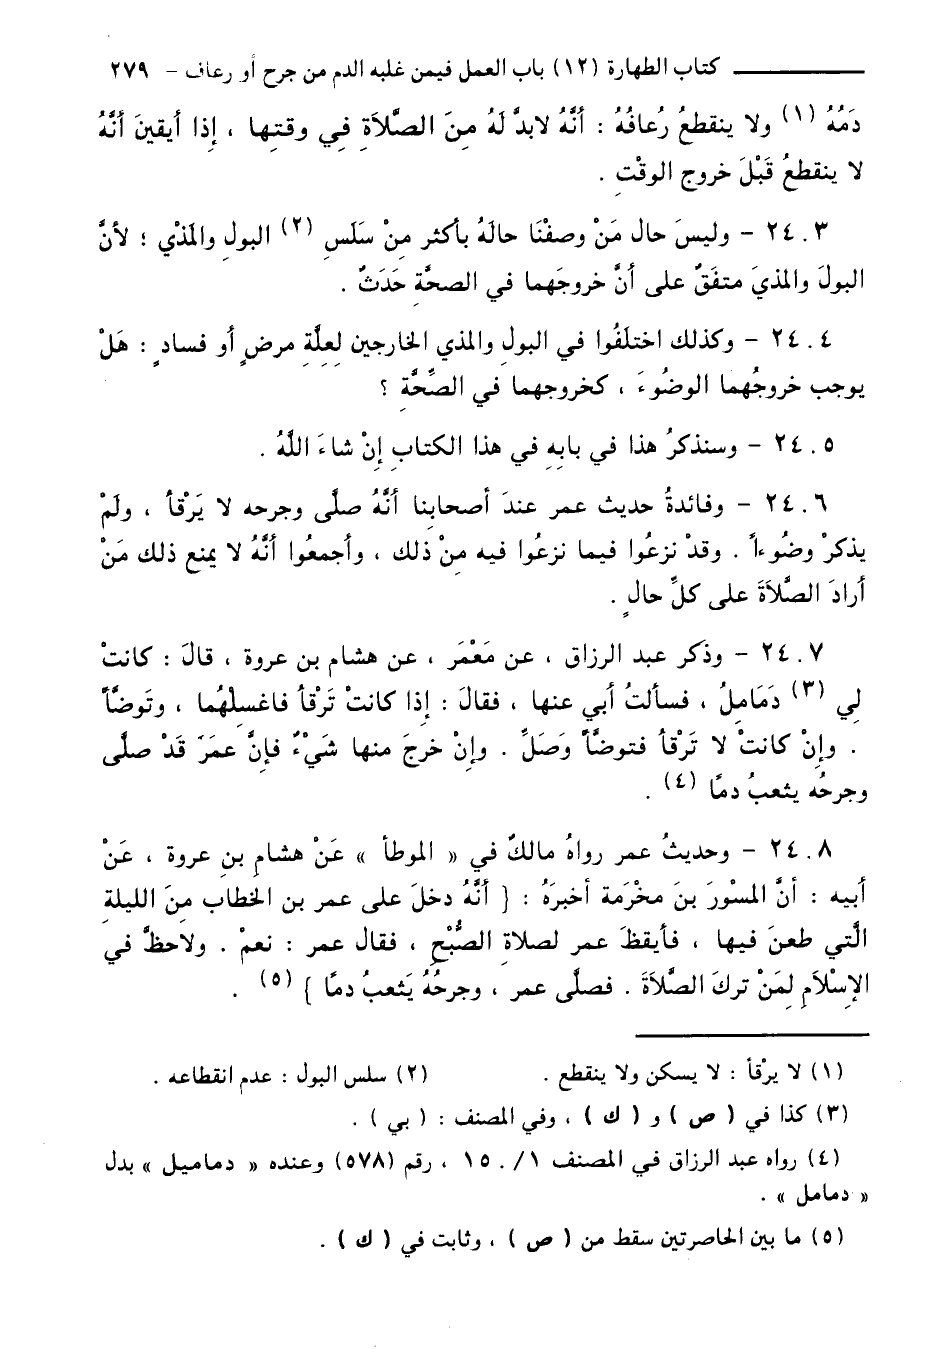 كتاب الطهارة (١٢) باب العمل فيمن غلبه الدم من جرح أو رعاف – ٢٧٩
دَمُهُ (١) ولا ينقطعُ رُعافُهُ : أنَّهُ لابدَّ لَهُ مِنَ الصَّلاَةِ في وقتِها ، إذا أيقنَ أنَّهُ
لا ينقطعُ قَبْلَ خروج الوقْتِ .
٢٤٠٣ – وليسَ حال مَنْ وصفْنَا حالَهُ بأكثر مِنْ سَلَسِ (٢) البولِ والمَذْي ؛ لأنَّ
البولَ والمذيَ متفَقٌ على أنَّ خروجَهما في الصحَّةِ حَدَثٌ .
٢٤٠٤ – وكذلك اختلَفُوا في البولِ والمذي الخارجين لِعِلَّةِ مرضٍ أو فسادٍ : هَلْ
يوجب خروجُهما الوضُوءَ ، كخروجهما في الصِّحَّةِ ؟
٢٤٠٥ – وسنذكرُ هذا في بابِهِ في هذا الكتابِ إنْ شاءَ اللَّهُ .
٢٤٠٦ – وفائدةُ حديث عمر عندَ أصحابِنا أنَّهُ صلَّى وجرحه لا يَرْقأ ، ولَمْ
يذكرْ وضُوءاً . وقدْ نزعُوا فيما نزعُوا فيه مِنْ ذلك ، وأجمعُوا أنَّهُ لا يمنع ذلك مَنْ
أرادَ الصَّلاَةَ على كلِّ حالٍ .
٢٤٠٧ – وذكَر عبد الرزاق ، عن مَعْمَر ، عن هشام بن عروة ، قالَ : كانتْ
لِي (٣) دَمَامِلُ ، فسألتُ أبي عنها ، فقالَ : إذا كانتْ تَرْقأ فاغسِلْهُما ، وتَوضَّأْ
. وإنْ كانتْ لا تَرْقأ فتوضَّأْ وَصَلِّ . وإنْ خرجَ منها شَيْءٌ فإنَّ عمَرَ قَدْ صلَّى
وجرحُه يثعبُ دمًا (٤) .
٢٤٠٨ – وحديثُ عمر رواهُ مالكٌ في « الموطأ » عَنْ هشامِ بنِ عروة ، عَنْ
أبيه : أنَّ المسْوَرَ بنَ مخْرَمة أخبرَهُ : { أنَّهُ دخلَ على عمر بن الخطاب مِنَ الليلةِ
الَّتي طعنَ فيها ، فأيقظَ عمر لصلاةِ الصُّبْحِ ، فقال عمر : نعمْ . ولاحظَّ في
الإسْلاَمِ لِمَنْ تركَ الصَّلاَةَ . فصلَّى عمر ، وجرحُهُ يَثعبُ دمًا } (٥) .
(١) لا يرْقأ : لا يسكن ولا ينقطع . (٢) سلس البول : عدم انقطاعه .
(٣) كذا في ( ص ) و ( ك ) ، وفي المصنف : ( بي ) .
(٤) رواه عبد الرزاق في المصنف ١ / ١٥٠ ، رقم (٥٧٨) وعنده « دماميل » بدل
« دمامل » .
(٥) ما بين الحاصرتين سقط من ( ص ) ، وثابت في ( ك ) .